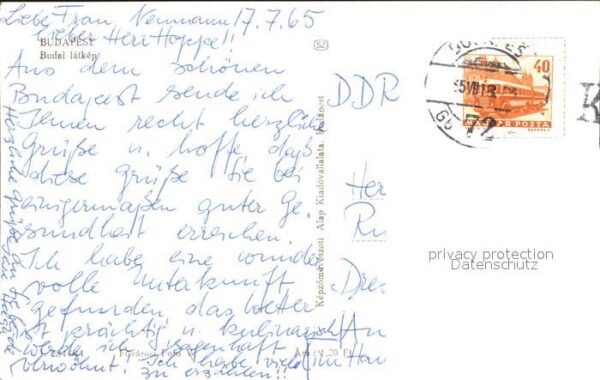 Liebe Frau Neumann 17.7.65
lieber Herr Hoppe!!
BUDAPEST
Budai látkép
Aus dem schönen
Budapest sende ich
Ihnen recht herzliche
Grüße u. hoffe daß
diese Grüße Sie bei
einigermaßen guter Ge-
sundheit erreichen.
Ich habe eine wunder
volle Unterkunft
gefunden, das Wetter
ist prächtig u. kulinarisch
werde ich sagenhaft
verwöhnt! Ich habe viel
zu erzählen!!
Herzliche Grüße
Fővárosi Foto V.
Ára: 1,20 Ft
Képzőművészeti Alap Kiadóvállalata, Budapest
SZ
DDR
Her
Dre
Am
im Hau
40
MAGYAR POSTA
72
K
privacy protection
Datenschutz